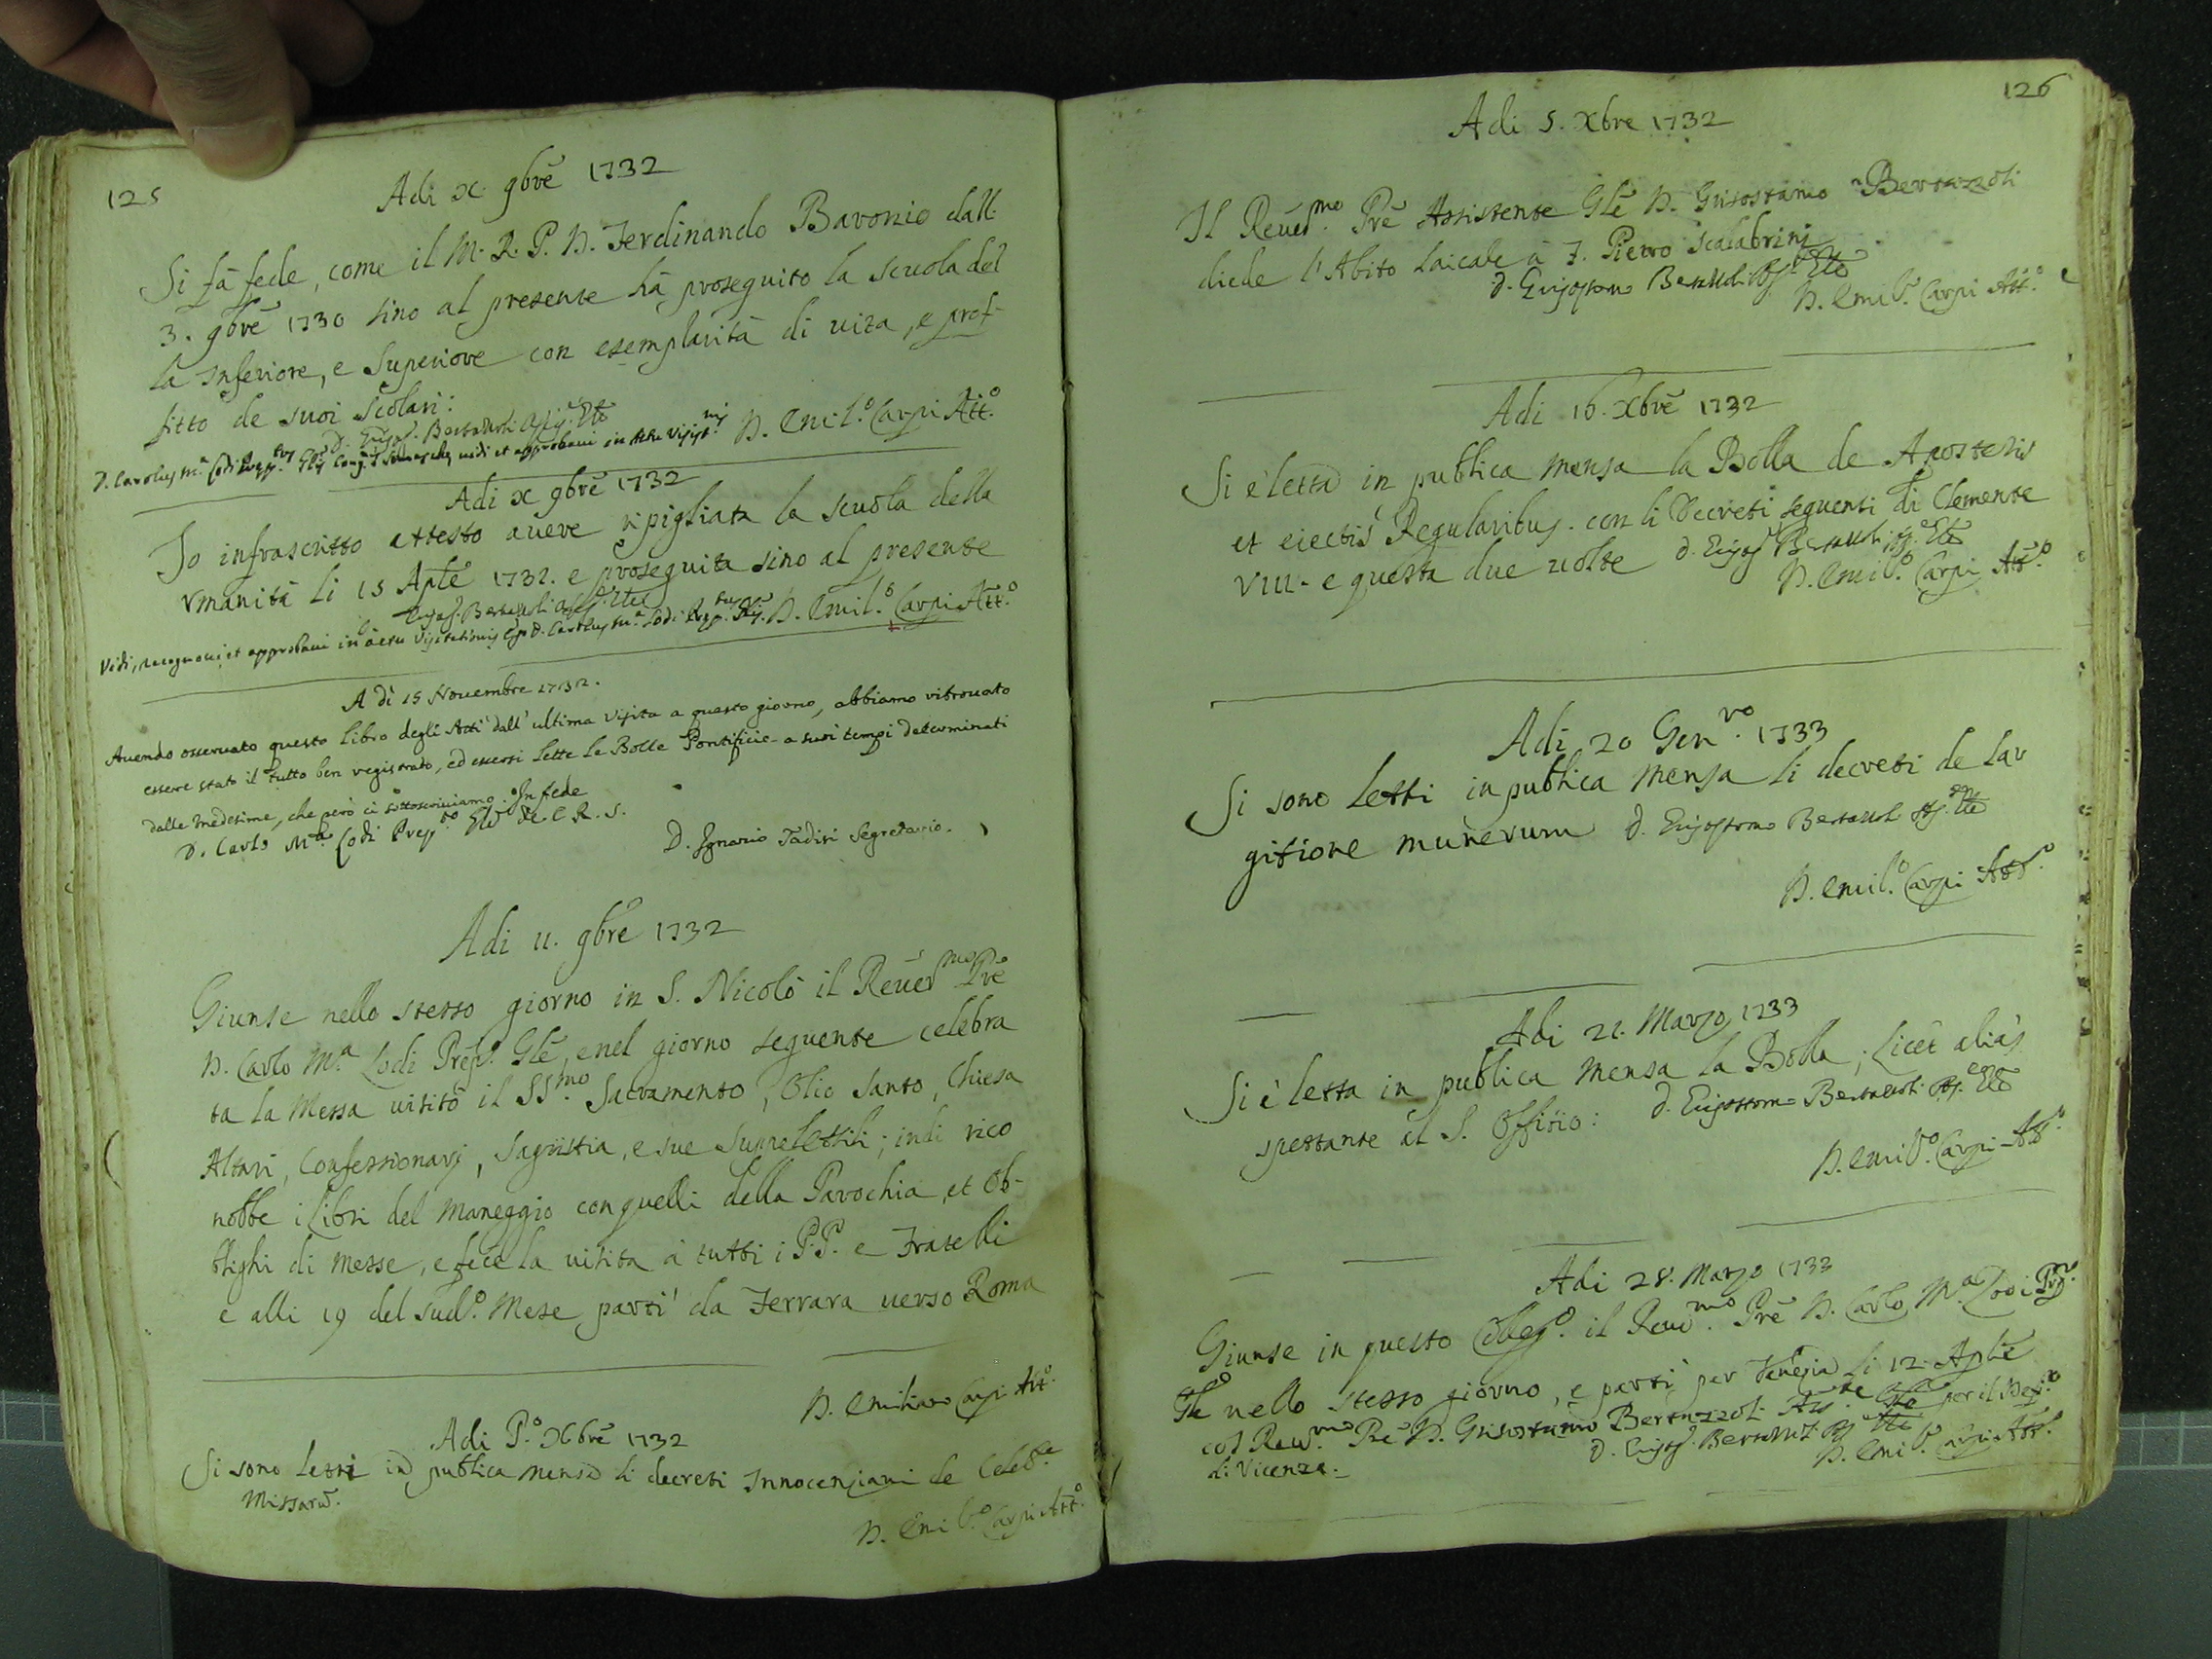 125
Adi x. 9bre 1732
Si fà fede, come il M. R. P. D. Ferdinando Baronio dall
3. 9bre 1730 sino al presente hà proseguito la scuola del
la Inferiore, e Superiore con esemplarità di vita, e prof-
fitto de suoi scolari:
D. Emil.o Carpi Att.o
Adi x 9bre 1732
Io infrascritto attesto avere ripigliata la scuola della
Vmanità li 15 Aple 1732. e proseguita sino al presente
D. Emil.o Carpi Att.o
Vidi, recognovi et approbavi in actu Visitationis
A dì 15 Novembre 1732.
Avendo osservato questo Libro degli Atti dall'ultima Visita a questo giorno, abbiamo ritrovato
essere stato il tutto ben registrato, ed essersi lette le Bolle Pontificie a suoi tempi determinati
dalle medesime, che però ci sottoscriviamo. In fede
D. Carlo M.a Lodi Prep.to Gle de C. R. S.
D. Ignazio Tadisi Segretario.
Adi 11. 9bre 1732
Giunse nello stesso giorno in S. Nicolò il Reverd.mo Pre
D. Carlo M.a Lodi Prep. Gle, e nel giorno seguente celebra
ta la Messa visitò il SS.mo Sacramento, Olio Santo, Chiesa
Altari, Confessionarj, Sagristia, e sue Suppelettili; indi rico
nobbe i Libri del Maneggio con quelli della Parochia, et Ob-
blighi di Messe, e fece la visita à tutti i P.P. e Fratelli
e alli 19 del sud.o Mese partì da Ferrara verso Roma
D. Emiliano Carpi Att.o
Adi P.o Xbre 1732
Si sono letti in publica mensa li decreti Innocenziani de Celeb.e
Missarũ.
D. Emil.o Carpi Att.o
126
Adi 5. Xbre 1732
Il Reverd.mo Pre Assistente Gle D. Grisostamo Bertazzoli
diede l'Abito Laicale à F. Pietro Scalabrini
D. Emil.o Carpi Att.o
Adi 16. Xbre 1732
Si è letta in publica mensa la Bolla de Apostatis
et eiectis Regularibus. con li Decreti seguenti di Clemente
VIII. e questa due volte
D. Emil.o Carpi Att.o
Adi 20 Gen.ro 1733
Si sono letti in publica mensa li decreti de lar
gitione munerum
D. Emil.o Carpi Att.o
Adi 21. Marzo 1733
Si è letta in publica mensa la Bolla; Licet aliàs
spettante al S. Offitio:
D. Emil.o Carpi Att.o
Adi 28. Marzo 1733
Giunse in questo Colleg.o il Revd.mo Pre D. Carlo M.a Lodi Prep.
Gle nello stesso giorno, e partì per Venezia li 12. Aple
col Revd.mo Pre D. Grisostamo Bertazzoli Ass.te Gle per il
di Vicenza.
D. Emil.o Carpi Att.o